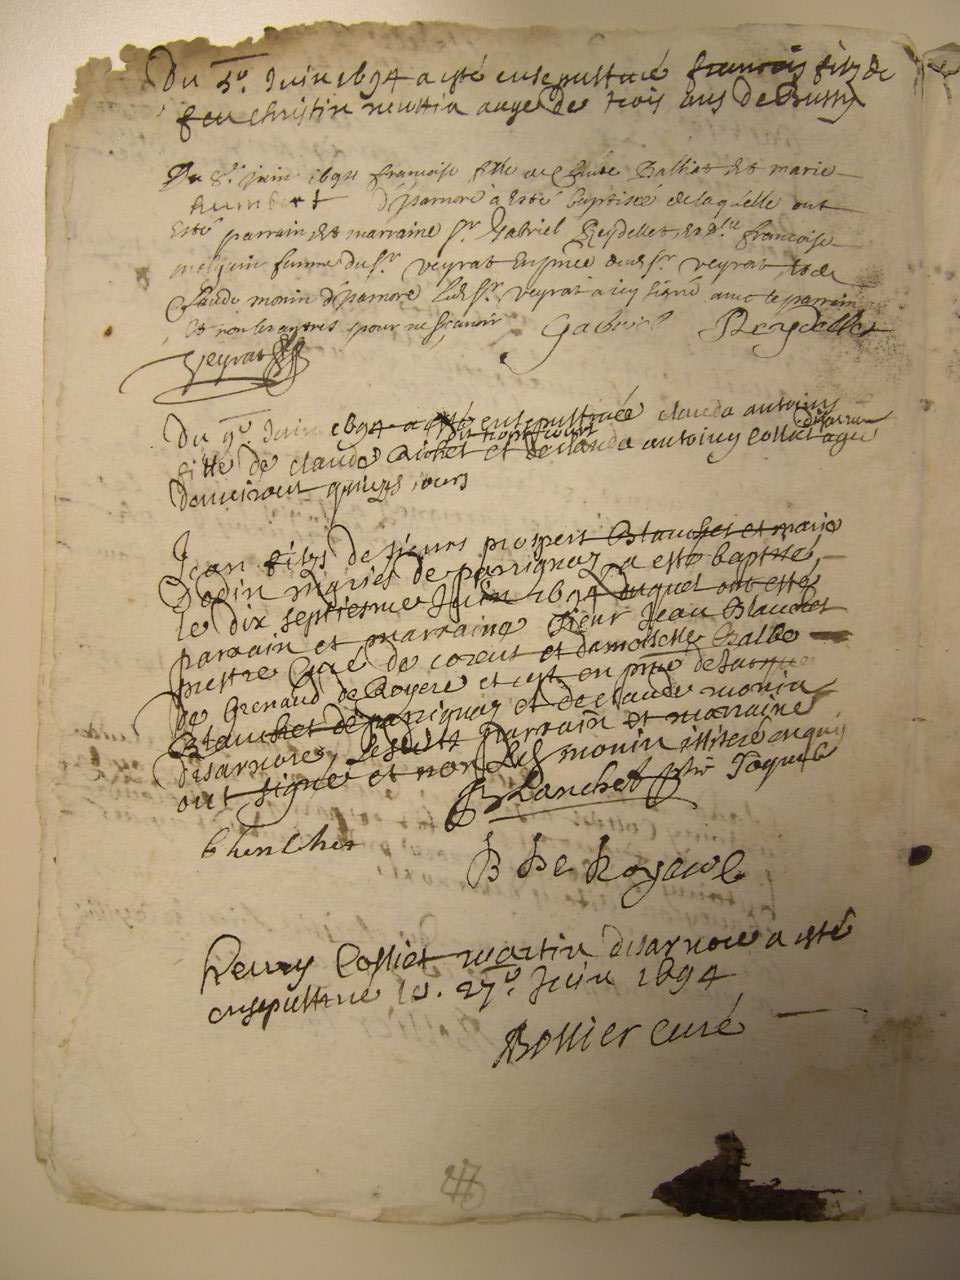 Du 5e. Juin 1694 a esté ensepulturé francois filz de
feu Christin neuttin aage de trois ans de Brussy
Du 8e. juin 1694 francoise fille de Claude Balliat et marie
humbert d'isarnore à esté baptisée de laquelle ont
Esté parrain et marraine sr. Gabriel Reydellet, et dlle francoise
femme du sr. veyrat en pnce dud. sr. veyrat, et de
Claude monin d'isarnore led. sr. veyrat a icy signé avec le parrain
et non les autres pour ne scavoir Gabriel Reydellet
Veyrat
Du 9e. Juin 1694 a esté ensepulturée clauda antoine
disarnore
fille de claude et de clauda antoine Colliet agee
d'environt quinze jours
Jean filz de sieurs prospert Blanchet et marie
Dodin mariés de parrignaz a esté baptisé
le dix septiesme Juin 1694 duquel ont esté
parrain et marraine sieur Jean Blanchet
prestre curé de et damoiselle Balbe
de Grenaud de Royere et cest en pnce de Jacque
Blanchet de parrignaz et de claude monin
disarnore, lesdits parrain et marraine
ont signé et non led. monin illiteré enquis
Blanchet ptre Jaque
blenchet
B De Royere
Henry Colliet martin disarnore a esté
ensepulturé le. 27e. Juin 1694
Bollier curé